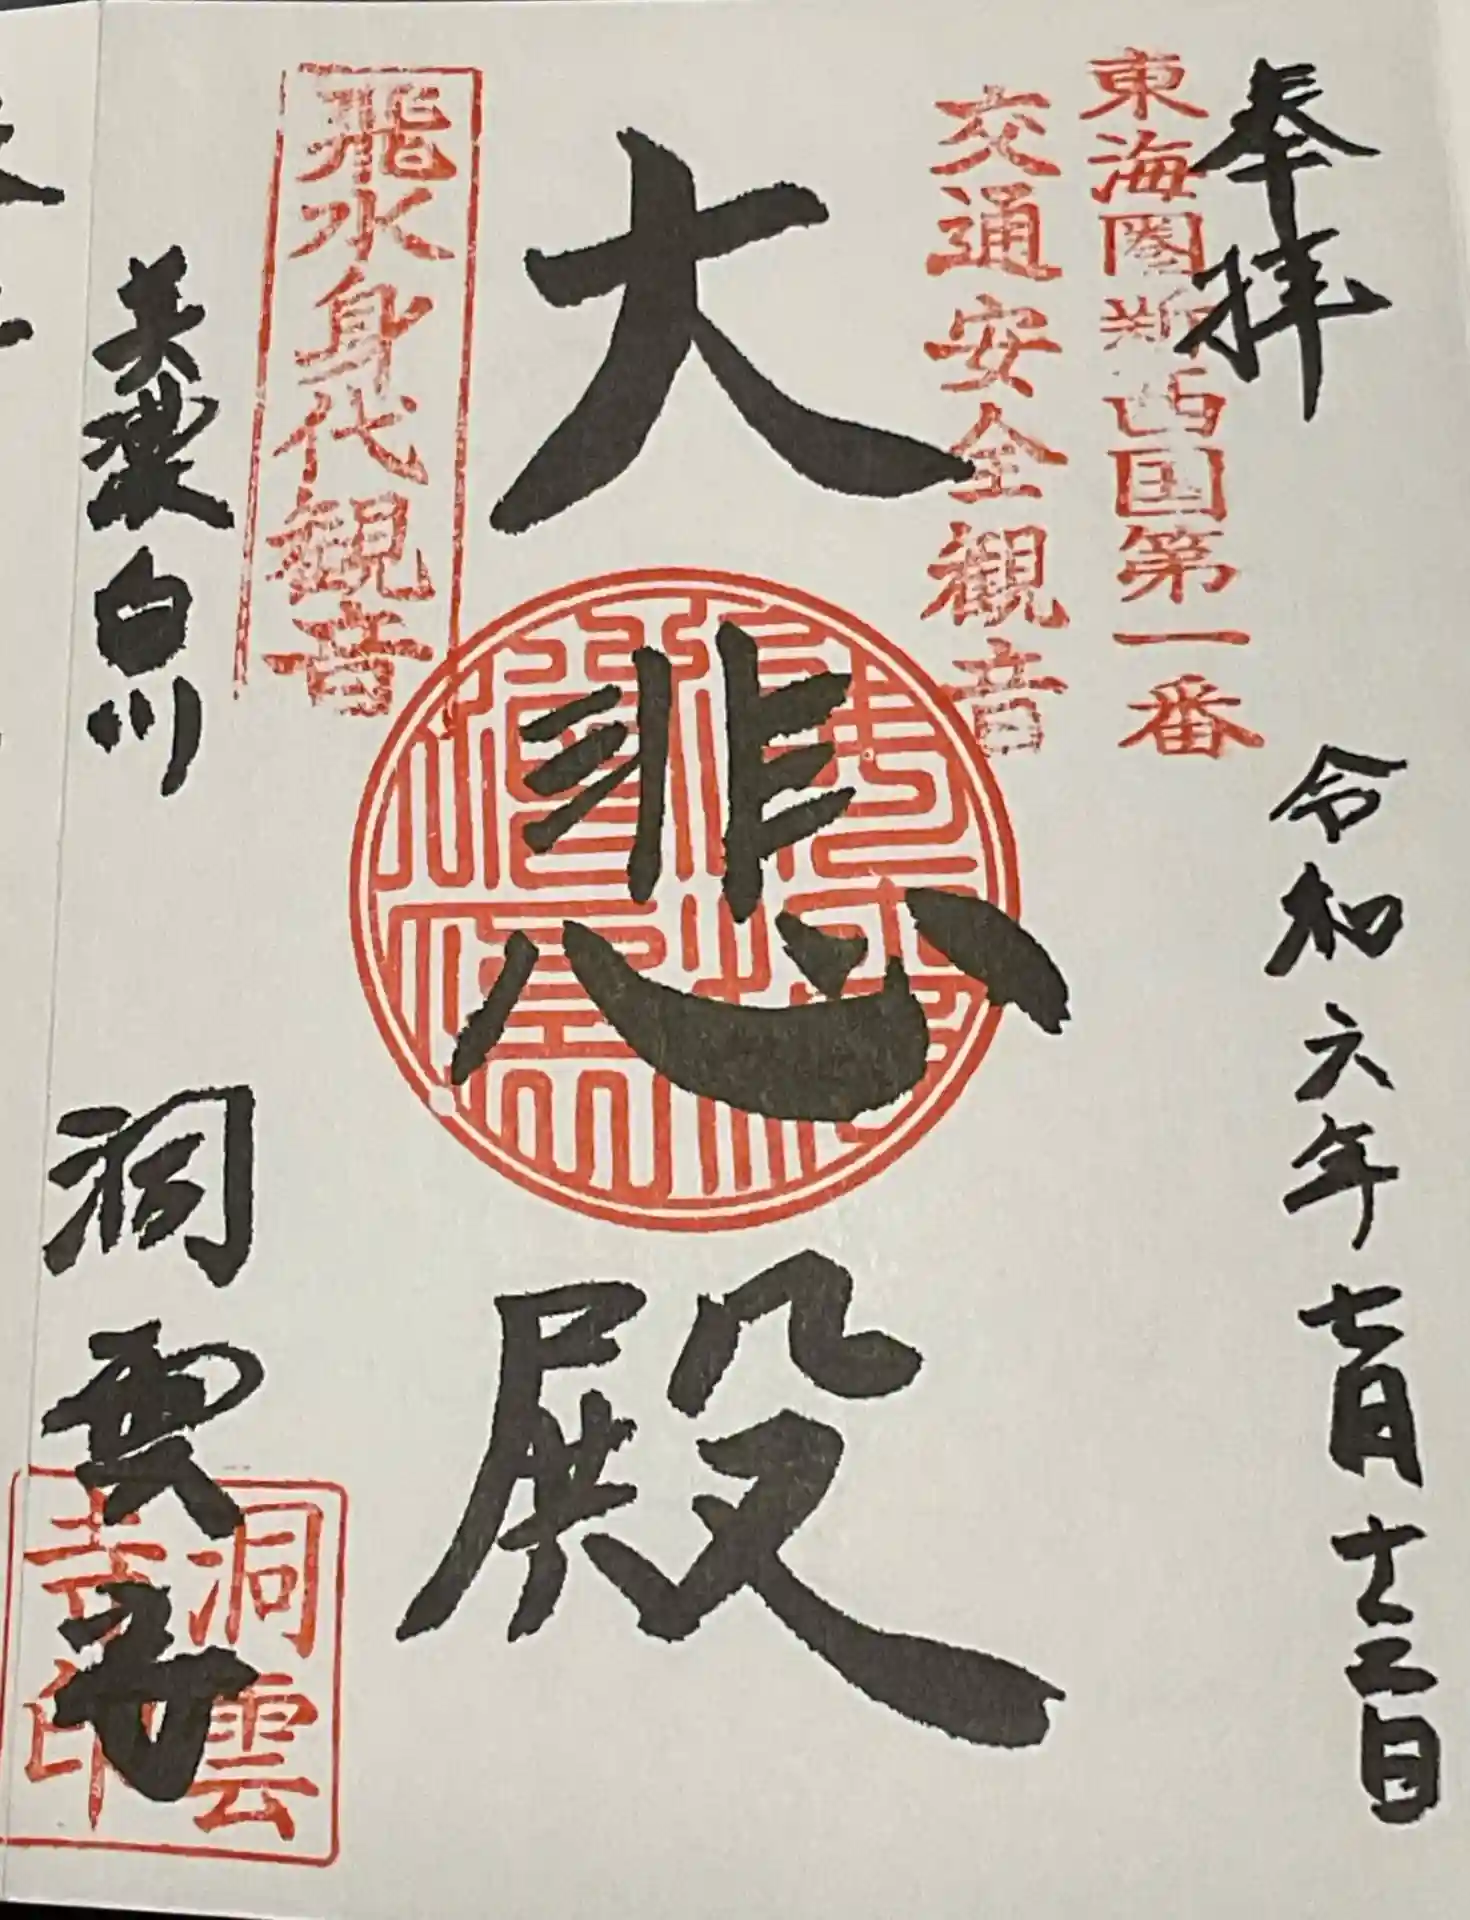 奉拝
令和六年七月十二日
東海圏新西国第一番
交通安全観音
大悲殿
飛水身代観音
美濃白川
洞雲寺
洞雲
寺印